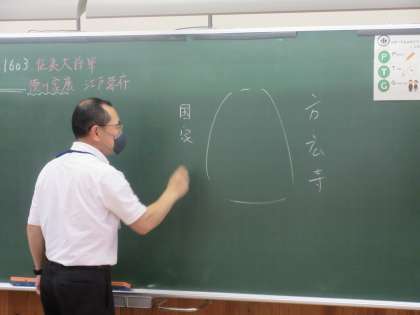 1603 征夷大将軍
徳川家康 江戸幕府
方広寺
国安
P
T
G